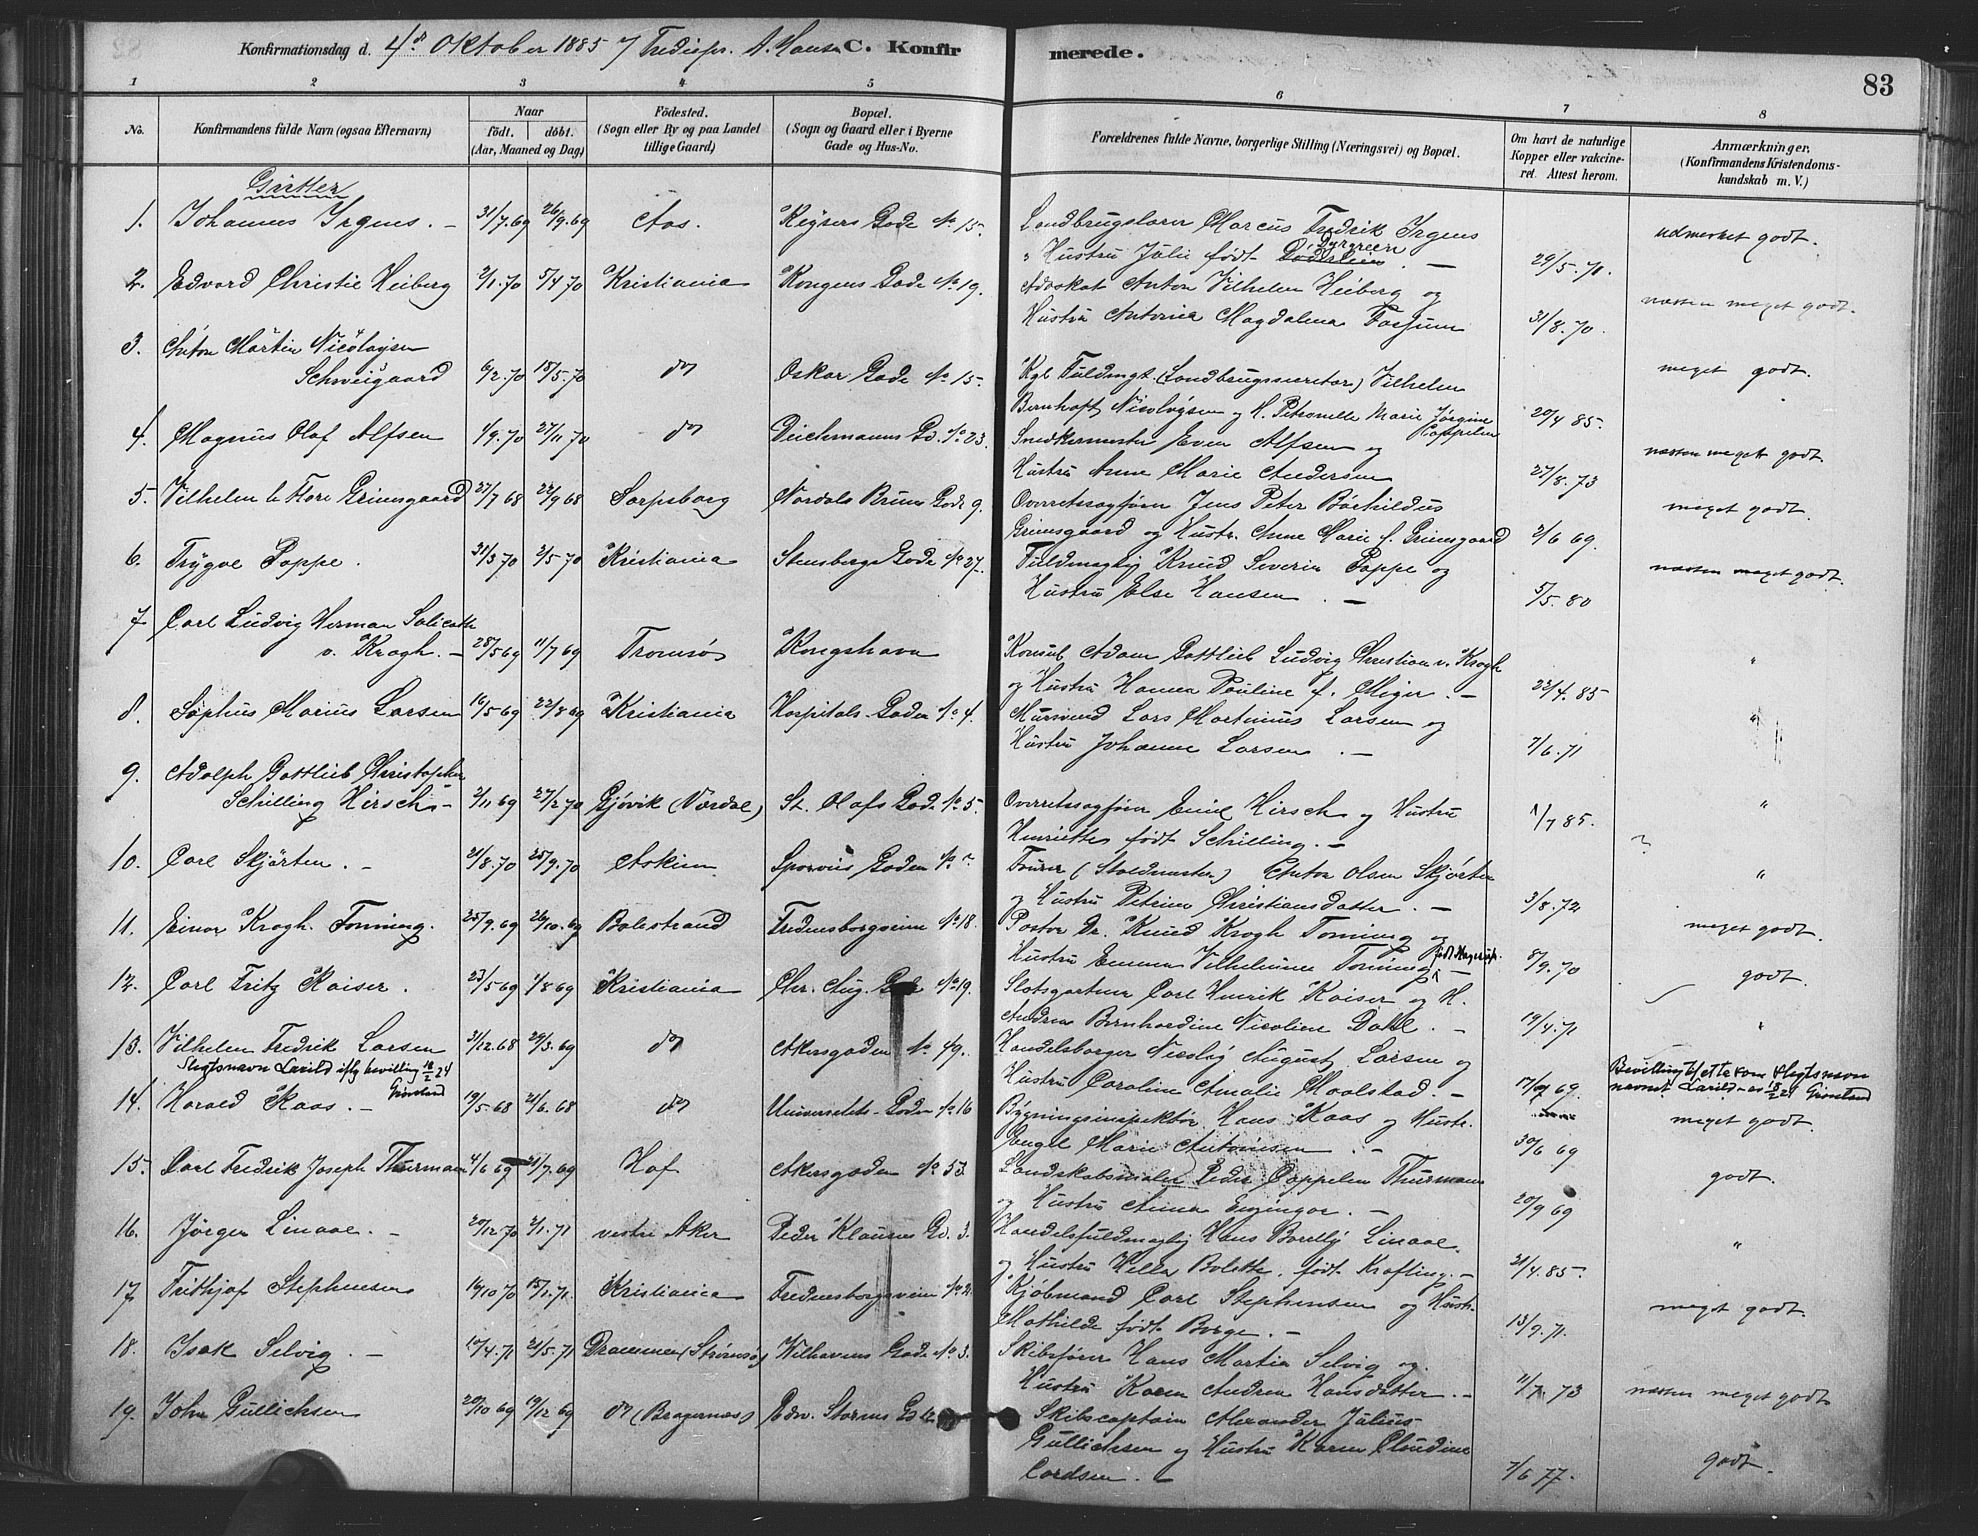 Konfirmationsdag d. 4de Oktober 1885 C. Konfirmerede. 83
1 2 3 4 5 6 7 8
No. Konfirmandens fulde Navn (ogsaa Efternavn) Naar født. døbt. (Aar, Maaned og Dag) Födested. (Sogn eller By og paa Landet tillige Gaard) Bopæl. (Sogn og Gaard eller i Byerne Gade og Hus-No. Forældrenes fulde Navne, borgerlige Stilling (Næringsvei) og Bopæl. Om havt de naturlige Kopper eller vakcineret. Attest herom. Anmærkninger. (Konfirmandens Kristendomskundskab m. V.)
Gutter
1. Johannes Irgens. 31/7.69 26/9.69 Aas. Keysers Gade No 15. Landbrugslærer Marcus Fredrik Irgens
Hustru Julie født Dyrgreen 29/5.71. udmerket godt.
2. Edvard Christie Heiberg 2/1.70 5/4 70 Kristiania Kongens Gade No 19. Advokat Anton Vilhelm Heiberg og
Hustru Antonia Magdalena Fossum 31/8.70. næsten meget godt.
3. Anton Martin Nicolaysen
Schweigaard 6/2.70 15/5.70 do Oskar Gade No 15. Kgl Fuldmgt. (Landbrugssecretær) Vilhelm
Bernhoft Nicolaysen og H. Petronelle Marie Jørgine Cappelen 20/4 85. meget godt.
4. Magnus Olaf Alfsen 1/9.70 27/11 70 do Deichmanns Gd. No 23. Snedkermester Even Alfsen og
Hustru Anne Marie Andersen 27/8.73 næsten meget godt.
5. Vilhelm le Flere Grimsgaard 27/7 68 24/9 68 Sarpsborg Nordals Bruns Gade 9. Overretssagfører Jens Peter
Grimsgaard og Hustr. Anne Marie f. Grimsgaard 2/6 69. meget godt.
6. Trygve Poppe. 31/3 70 2/5 70 Kristiania Stensbergs Gade No 27. Fuldmægtig Knud Severin Poppe og
Hustru Else Hansen. 5/5. 80 næsten meget godt.
7 Carl Ludvig Herman Salicath
v. Krogh. 28/5 69 11/7 69 Tromsø Kongshavn Konsul Adam Gottlieb Ludvig Christian v. Krogh
og Hustru Hanna Pauline f. 23/4.85 "
8. Sophus Marius Larsen 16/5 69 22/8 69 Kristiania Hospitals-Gaden No 4. MurSvend Lars Martinius Larsen og
Hustru Johanne Larsen. 7/6.71 "
9. Adolph Gottlieb Christopher
Schilling Hirsch 2/11 69 27/2 70 Gjøvik (Vardal) St. Olafs Gade No 5. Overretssagfører Emil Hirsch og Hustru
Henriette født Schilling. 1/7 85. "
10. Carl Skjørten. 21/8.70 25/9.70 Askim Sporveis Gaden No Fourer (Staldmester) Anton Olsen Skjørten
og Hustru Petrine Christiansdatter. 3/8.72 "
11. Einar Krogh Tonning. 25/9.69 26/10.69 Balestrand Fredensborgveien No 18. Pastor Dr. Knud Krogh Tonning og
Hustru Emma Vilhelmine Tonning født Hagerup. 8/9.70 meget godt.
12. Carl Fritz Kaiser. 23/5 69 1/8 69 Kristiania Chr. Aug. Gade No 19. Slotsgartner Carl Henrik Kaiser og H.
Andrea Bernhardine Nicoline Dahl. 19/4.71 godt
13. Vilhelm Fredrik Larsen 31/12.68 29/3.69 do Akersgaden No 49. Handelsborger Nicolaj August Larsen og
Slegtsnavn Larild iflg bevilling 18/2 24 Grønland
Hustru Caroline Amalie Maalstad. 17/9 69. "
Bevilling til ette som slegtsnavn navnet Larild 18/2 24 Grønland
14. Harald Kaas. 19/5.68 21/6.68 do Universitets-Gaden No 16 Bygningsinspektør Hans Kaas og Hustr.
Engel Marie Antonisen. 30/6 69 meget godt.
15. Carl Fredrik Joseph Thurmann 4/6 69 21/7.69 Hof Akersgaden No 53. Landskabsmaler Peder Cappelen Thurmann
og Hustru Anna 20/9 69 godt.
16. Jørgen Linaae. 20/12.70 2/1.71 vestre Aker Peder Klausens Gd. 3. Handelsfuldmægtig Hans Linaae
og Hustru Hella Bolette født Krafting. 21/4.85. "
17. Frithjof Stephensen 16/10 70 15/1.71. Kristiania Fredensborgveien No 2. Kjøbmand Carl Stephensen og Hustr.
Mathilde født Borge. 13/9.71. meget godt.
18. Isak Selvig 10/4.71 21/5.71 Drammen (Strømsø) Wilhavens Gade No 3. Skibsfører Hans Martin Selvig og
Hustru Karen Andrea Hansdatter. 11/7 73 næsten meget godt.
19. John Gullichsen 20/10 69 19/12 69 do (Bragernæs) Edv. Storms Gd. Skibscaptain Alexander Julius
Gullichsen og Hustru Karen Claudine
Cordsen. 7/6 77. godt.